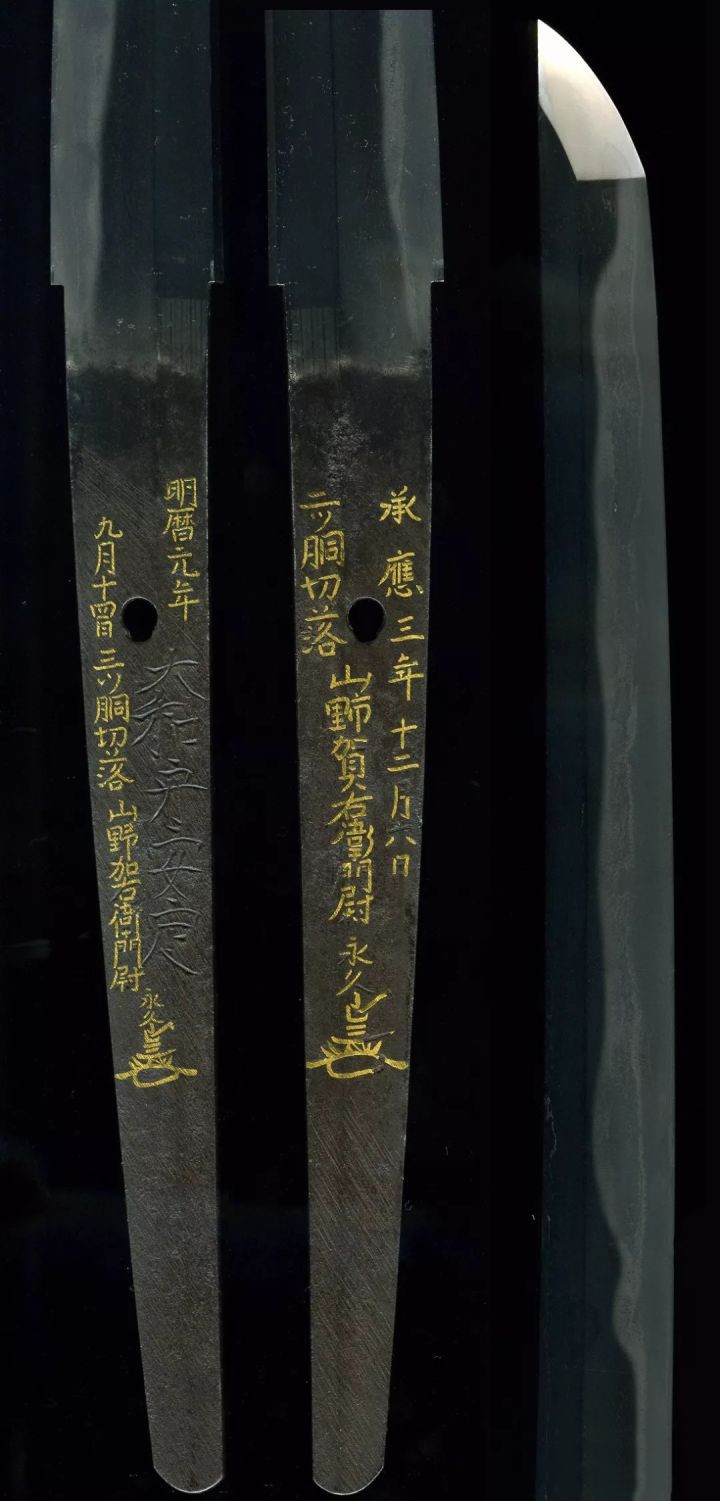 明暦元年
大和守安定
九月十四日 三ツ胴切落 山野加右衛門尉 永久
承應三年十二月八日
山野賀右衛門尉 永久
二ツ胴切落